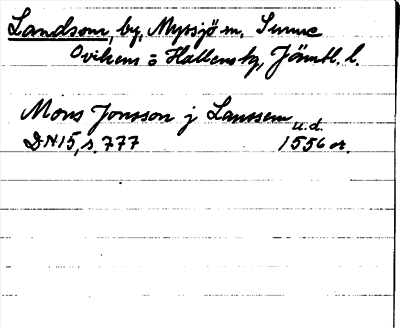 Landsom, by, Myssjö m. Sunne
Ovikens o Hallens tg, Jämtl. l.
Mons Jonsson j Lanssem
u.d.
DN15, s. 777 1556 or.